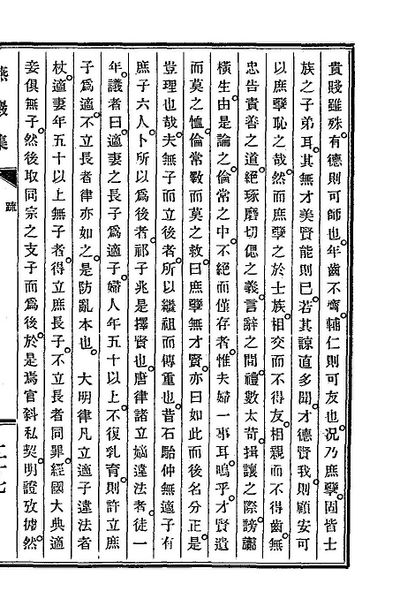 貴賤雖殊有德則可師也年齒不齊輔仁則可友也況乃庶孽固皆士
族之子弟耳其無才美賢能則已若其諒直多聞才德賢我則顧安可
以庶孽恥之哉然而庶孽之於士族相交而不得友相親而不得齒無
忠告責善之道絶琢磨切偲之義言辭之間禮數太苛揖讓之際謗讟
橫生由是論之倫常之中不絶而僅存者惟夫婦一事耳嗚乎才賢遺
而莫之恤倫常斁而莫之救曰庶孽無才賢亦曰如此而後名分正是
豈理也哉夫無子而立後者所以繼祖而傳重也昔石駘仲無適子有
庶子六人卜所以爲後者祁子兆是擇賢也唐律諸立嫡違法者徒一
年議者曰適妻之長子爲適子婦人年五十以上不復乳育則許立庶
子爲適不立長者律亦如之是防亂本也 大明律凡立適子違法者
杖適妻年五十以上無子者得立庶長子不立長者同罪經國大典適
妾俱無子然後取同宗之支子而爲後於是焉官斜私契明證攷據然
燕巖集
疏
二十七